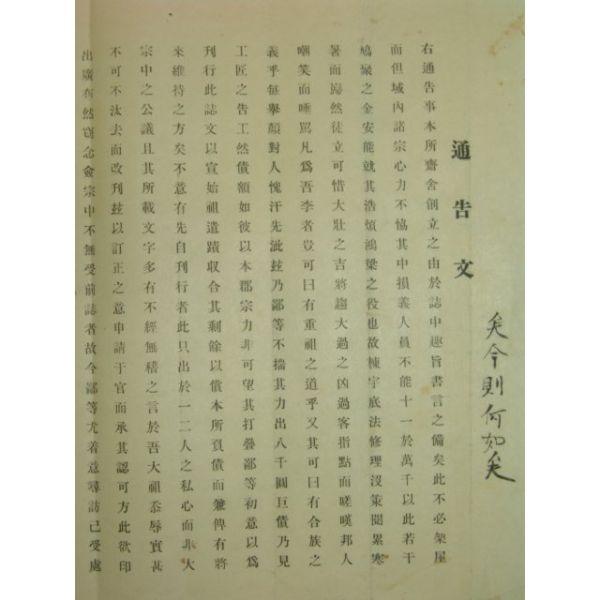 矣今則何如矣
通告文
右通告事本所齋舍創立之由於誌中趣旨書言之備矣此不必架屋
而但域內諸宗心力不恊其中損義人員不能十一於萬千以此若干
鳩聚之金安能就其浩煩鴻梁之役也故棟宇底法修理沒策閱累寒
暑而巋然徒立可惜大壯之吉將趨大過之凶過客指點而嗟嘆邦人
嘲笑而唾罵凡爲吾李者豈可曰有重祖之道乎又其可曰有合族之
義乎每擧顏對人愧汗先泚玆乃鄙等不揣其力出八千圓巨債乃見
工匠之告工然債額如彼以本郡宗力非可望其打疊鄙等初意以爲
刊行此誌文以宣始祖遺蹟収合其剩餘以償本所負債而兼俾有將
來維持之方矣不意有先自刊行者此只出於一二人之私心而非大
宗中之公議且其所載文字多有不經無稽之言於吾大祖忝辱實甚
不可不汰去而改刊玆以訂正之意申請于官而承其認可方此欲印
出廣布然竊念僉宗中不無受前誌者故今鄙等尤着意尋訪已受處